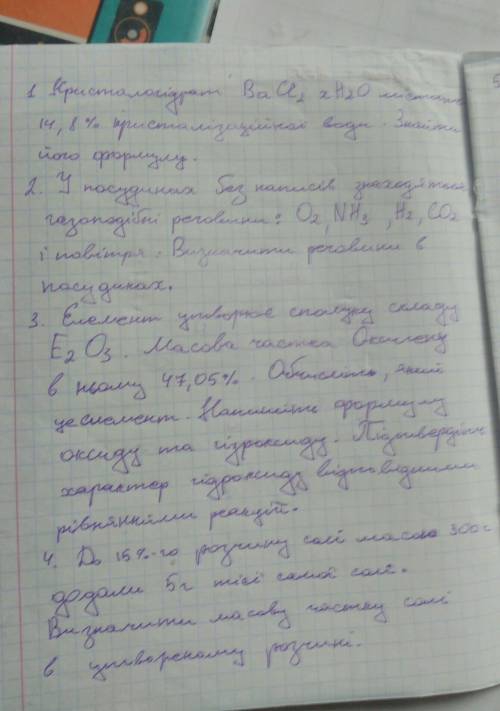 1 Кристалогідрат BaCl2 xH2O містить
14,8% кристалізаційної води. Знайти
його формулу.
2. У посудинах без написів знаходяться
газоподібні речовини: O2, NH3, H2, CO2
і повітря. Визначити речовини в
посудинах.
3. Елемент утворює сполуку складу
E2O3. Масова частка Оксигену
в ньому 47,05%. Обчисліть, який
це елемент. Напишіть формулу
оксиду та гідроксиду. Підтвердіть
характер гідроксиду відповідними
рівняннями реакцій.
4. До 15%-го розчину солі масою 300г
додали 5г тієї самої солі.
Визначити масову частку солі
в утвореному розчині.